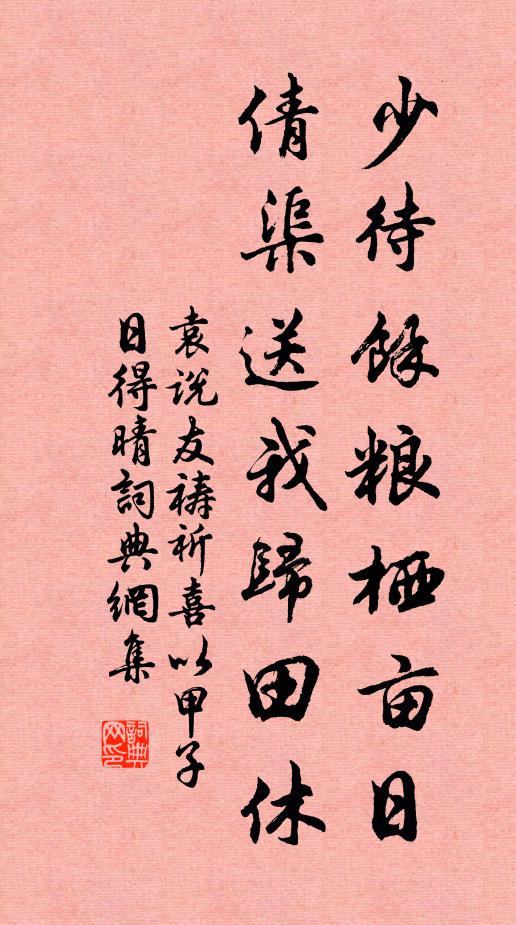 少待餘粮栖亩日
倩渠送我歸田休
袁说友禱祈喜以甲子
日得晴詞典網集
詞典
网印